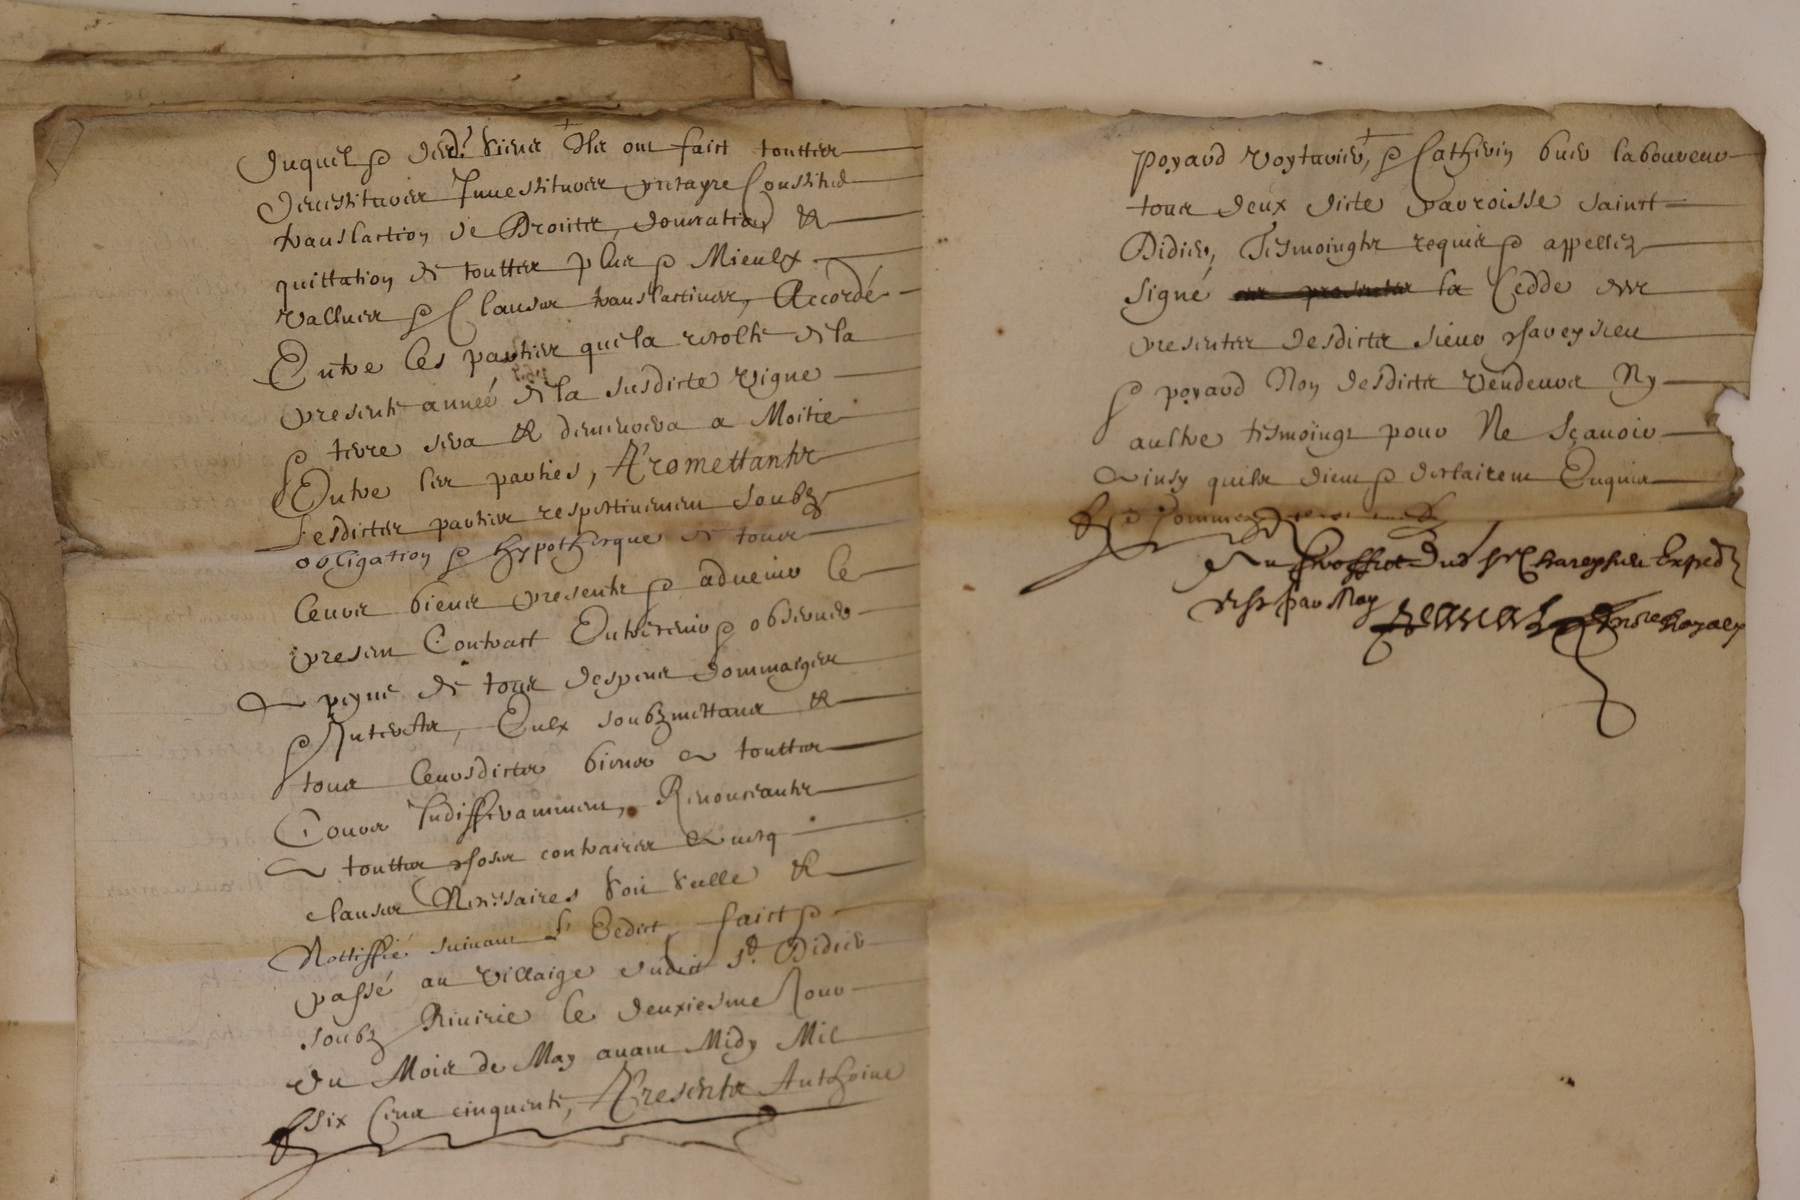 Duquel & desd. biens Ilz ont faict touttes
devestitures Investitures precayre Constitué
translaction de Droictz, donnation &
quittation de touttes plus & Mieulx
Vallues & Clauses translactives, Accordé
Entre les parties que la recolte de la
presente année de la susdicte vigne
& terre sera & demeurera a Moitie
Entre les parties, Promettantz
Lesdictes parties respectivement soubz
obligation & hypotheque de tous
leurs biens presentz & advenir le
present Contract Entretenir & observer
A peyne de tous despens dommaiges
& Interestz, Eulx soubzmettans &
tous leursdictes biens A touttes
Cours Indifferamment, Renonceantz
A touttes choses contraires Avecq
clauses Necessaires soit seelle &
Nottiffié suivant L'Eedict, faict &
passé au Villaige dudict St. Didier
soubz Riverie le deuxiesme Jour
du Mois de May avant Midy Mil
six Cens cinquante, Presentz Anthoine
Poyard Voyturier, & Catherin buer laboureur
tous deux dicte parroisse sainct
Didier, Tesmoingtz requis & appellez
signé la Cedde des
presentes lesdictz sieur Chareysieu
& poyard Non lesdictz vendeurs Ny
aultre tesmoingt pour Ne Sçavoir
Ainsy quilz dient & desclairent Enquis
& Sommez
Au proffict dud Sr Chareysieu Exped
des par Moy Nore Royal